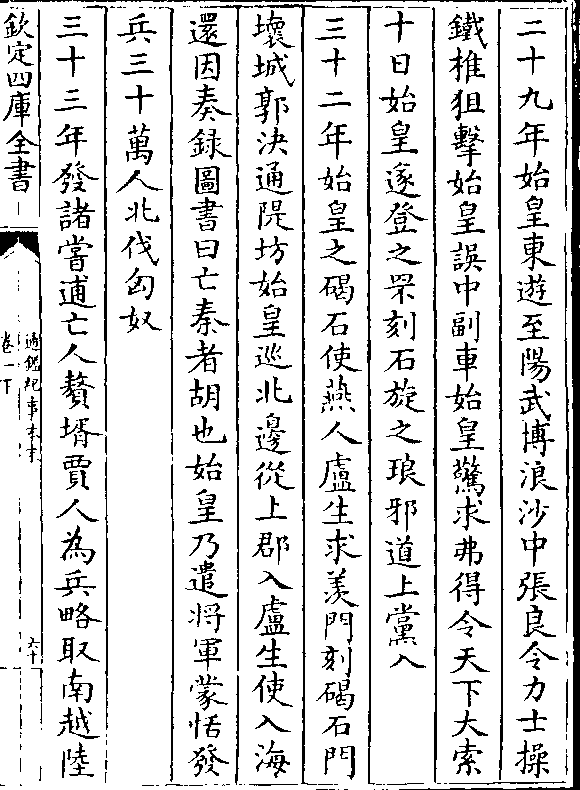 二十九年始皇東遊至陽武博浪沙中張良令力士操
鐵椎狙擊始皇誤中副車始皇驚求弗得令天下大索
十日始皇遂登之罘刻石旋之琅邪道上黨入
三十二年始皇之碣石使燕人盧生求羨門刻碣石門
壞城郭決通隄坊始皇巡北邊從上郡入盧生使入海
還因奏録圖書曰亡秦者胡也始皇乃遣将軍蒙恬發
兵三十萬人北伐匈奴
三十三年發諸嘗逋亡人贅壻賈人為兵略取南越陸
欽定四庫全書
通鑑紀事本末
卷一下
六十